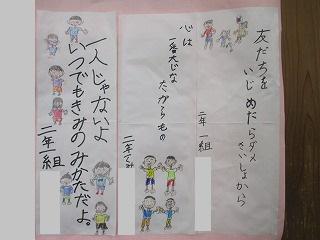 友だちを
いじめたらダメ
さいしょから
二年一組
心は
一番大じな
たからもの
二年一くみ
一人じゃないよ
いつでもきみのみかただよ。
二年一組